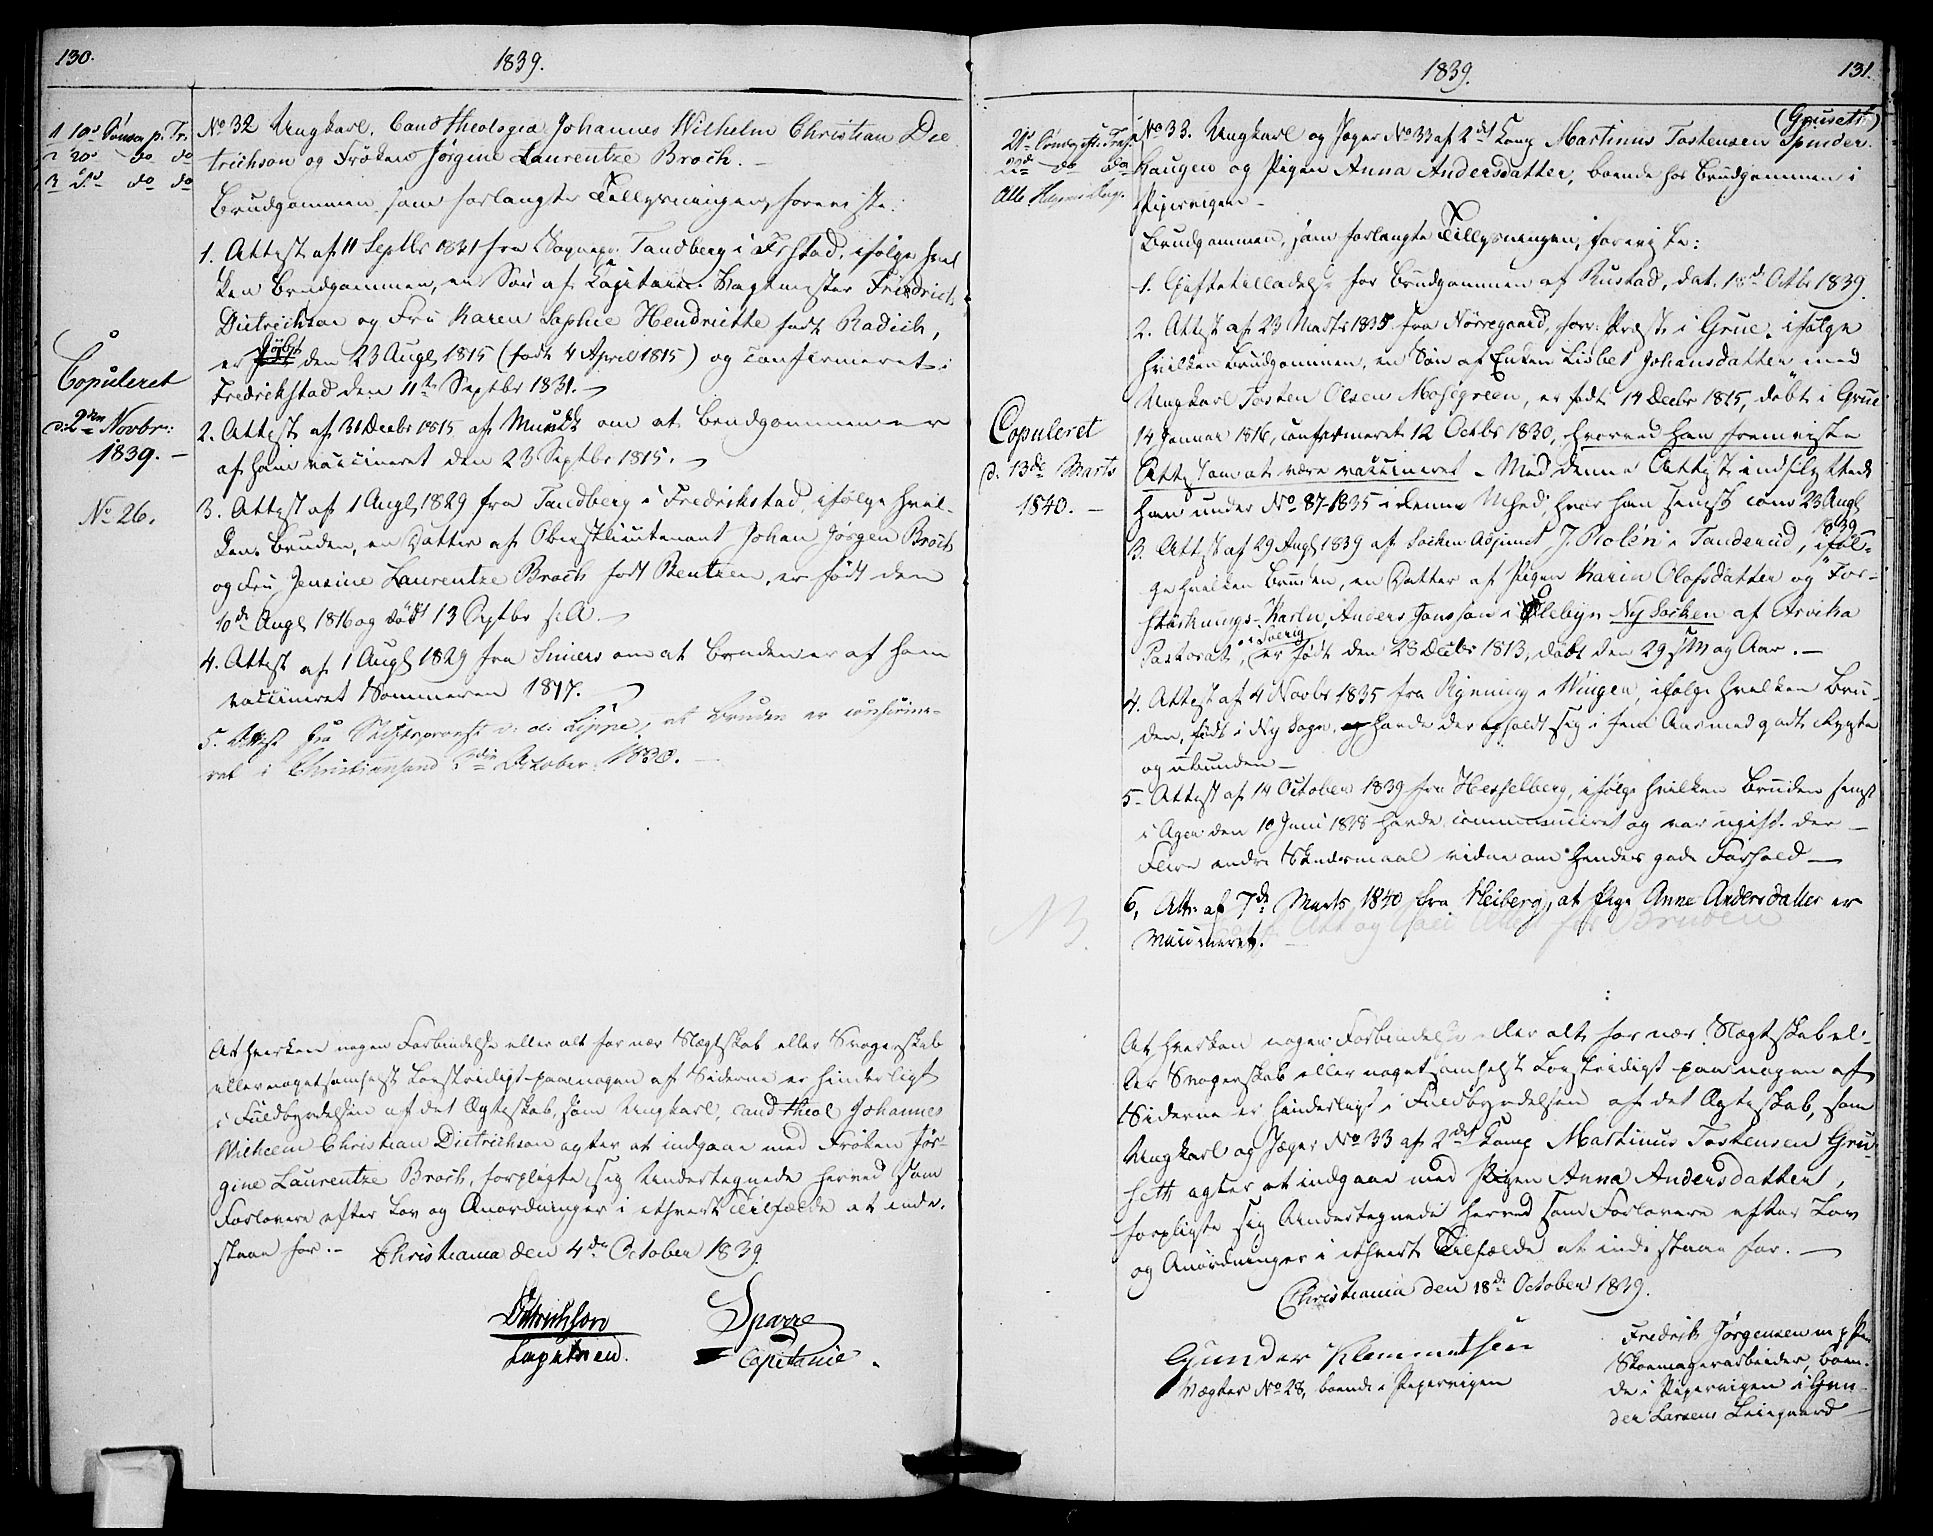 130.
1839.
1 19de Sönd. p. Tr.
2 20d do do
3 do do
No 32 Ungkarl, Cand Theologiæ Johannes Wilhelm Christian Die
trichson og Frøken Jørgine Laurentze Broch. -
Brudgommen, som forlangte Tillysningen, foreviste:
1. Attest af 11 Septbr 1831 fra Tandberg i Fr.stad, ifølge hvil
ken Brudgommen, en Søn af Capitain Friedrich
Dietrichson og Fru Karen Sophie Hendriette født Radich,
er døbt den 23 Augs 1815 (født 4 April 1815) og confirmeret i
Fredrikstad den 11te Septbr 1831. -
2. Attest af 31 Decbr 1815 af Munck om at Brudgommen er
af ham vaccineret den 23 Septbr 1815. -
3. Attest af 1 Augs 1829 fra Tandberg i Fredrikstad, ifølge hvil-
ken Bruden, en Datter af Oberstlieutenant Johan Jørgen Broch
og Fru Jensine Laurentze Broch født Bentzen, er født den
10de Augs 1816 og døbt 13 Septbr s. A. -
4. Attest af 1 Augs 1829 fra om at Bruden er af ham
vaccineret Sommeren 1817. -
5. Attest fra Stiftsprovst v. d. Lippe, at Bruden er confirme-
ret i Christiansand October 1830. -
Copuleret
d: 2den Novbr:
1839. -
No 26.
At hverken nogen Forbindelse eller alt for nær Slægtskab eller Svogerskab
eller nogetsomhelst Lovstridigt paa nogen af Siderne er hinderligt
i Fuldbyrdelsen af det Ægteskab, som Ungkarl, cand theol Johannes
Wilhelm Christian Dietrichson agter at indgaae med Frøken Jør-
gine Laurentze Broch, forpligte sig Undertegnede herved som
Forlovere efter Lov og Anordninger i ethvert Tilfælde at inde-
staae for. - Christiania den 4de October 1839.
Dittrichson Sparre
Capitaien. Capitanie.
1839.
131.
(Gruseth)
21de Sönd. eft. Tref.
22d do do
No 33. Ungkarl og Jæger No 33 af 2det Comp Martinus Tostensen
haugen og Pigen Anna Andersdatter, boende hos Brudgommen i
Pipervigen -
Brudgommen, som forlangte Tillysningen, foreviste:
1. Giftetilladelse for Brudgommen af Rustad, dat. 18de Octbr 1839
2. Attest af 23 Marts 1835 fra Nørregaard, forr. Præst i Grue, ifølge
hvilken Brudgommen, en Søn af Enken Lisbet Johansdatter med
Ungkarl Tosten Olsen Mosegreen, er født 14 Decbr 1815, døbt i Grue
14 Januar 1816, confirmeret 12 Octbr 1830, hvorved han fremviste
Attest om at være vaccineret - Med denne Attest indflyttede
han under No 87-1835 i denne Mhed, hvor han senest com 23 Augs
1839
3. Attest af 29 Augs 1839 af Socken Adjunct J. Rolén i Tanderud, iføl-
ge hvilken Bruden, en Datter af Pigen Karin Olofsdatter og For-
stärknings-Karln, Anders Jonsson i Elebyn Ny Socken af Arvika
Pastorat, i Sverig, er født den 28 Decbr 1813, døbt den 29 s M og Aar. -
4. Attest af 4 Novbr 1835 fra Rynning i Wingen, ifølge hvilken Bru-
den, født i Ny Sogn, havde der opholdt sig i fem Aar med godt Rygte
og ubunden -
5. Attest af 14 October 1839 fra Hesselberg, ifølge hvilken Bruden senest
i Ager den 10 Juni 1838 havde communiceret og var ugift der -
Flere andre Skudsmaal vidne om hendes gode Forhold -
6, Att: af 7de Marts 1840 fra Heiberg, at Pige Anne Andersdatter er
vaccineret.
NB. Att og Att for Bruden
Copuleret
d. 13de Marts
1840. -
At hverken nogen Forbindelse eller alt for nær Slægtskab el-
ler Svogerskab eller nogetsomhelst Lovstridigt paa nogen af
Siderne er hinderligt i Fuldbyrdelsen af det Ægteskab, som
Ungkarl og Jæger No 33 af 2det Comp Martinus Tostensen Gru-
seth agter at indgaae med Pigen Anna Andersdatter,
forpligte sig Undertegnede herved som Forlovere efter Lov
og Anordninger i ethvert Tilfælde at indestaae for. -
Christiania den 18de October 1839.
Gunder Klemmetsen
Vægter No 28, boende i Pipervigen
Fredrik Jørgensen m p Pen
Skomagerarbeider, boen-
de i Pipervigen i Gun-
der Larsens Leiegaard